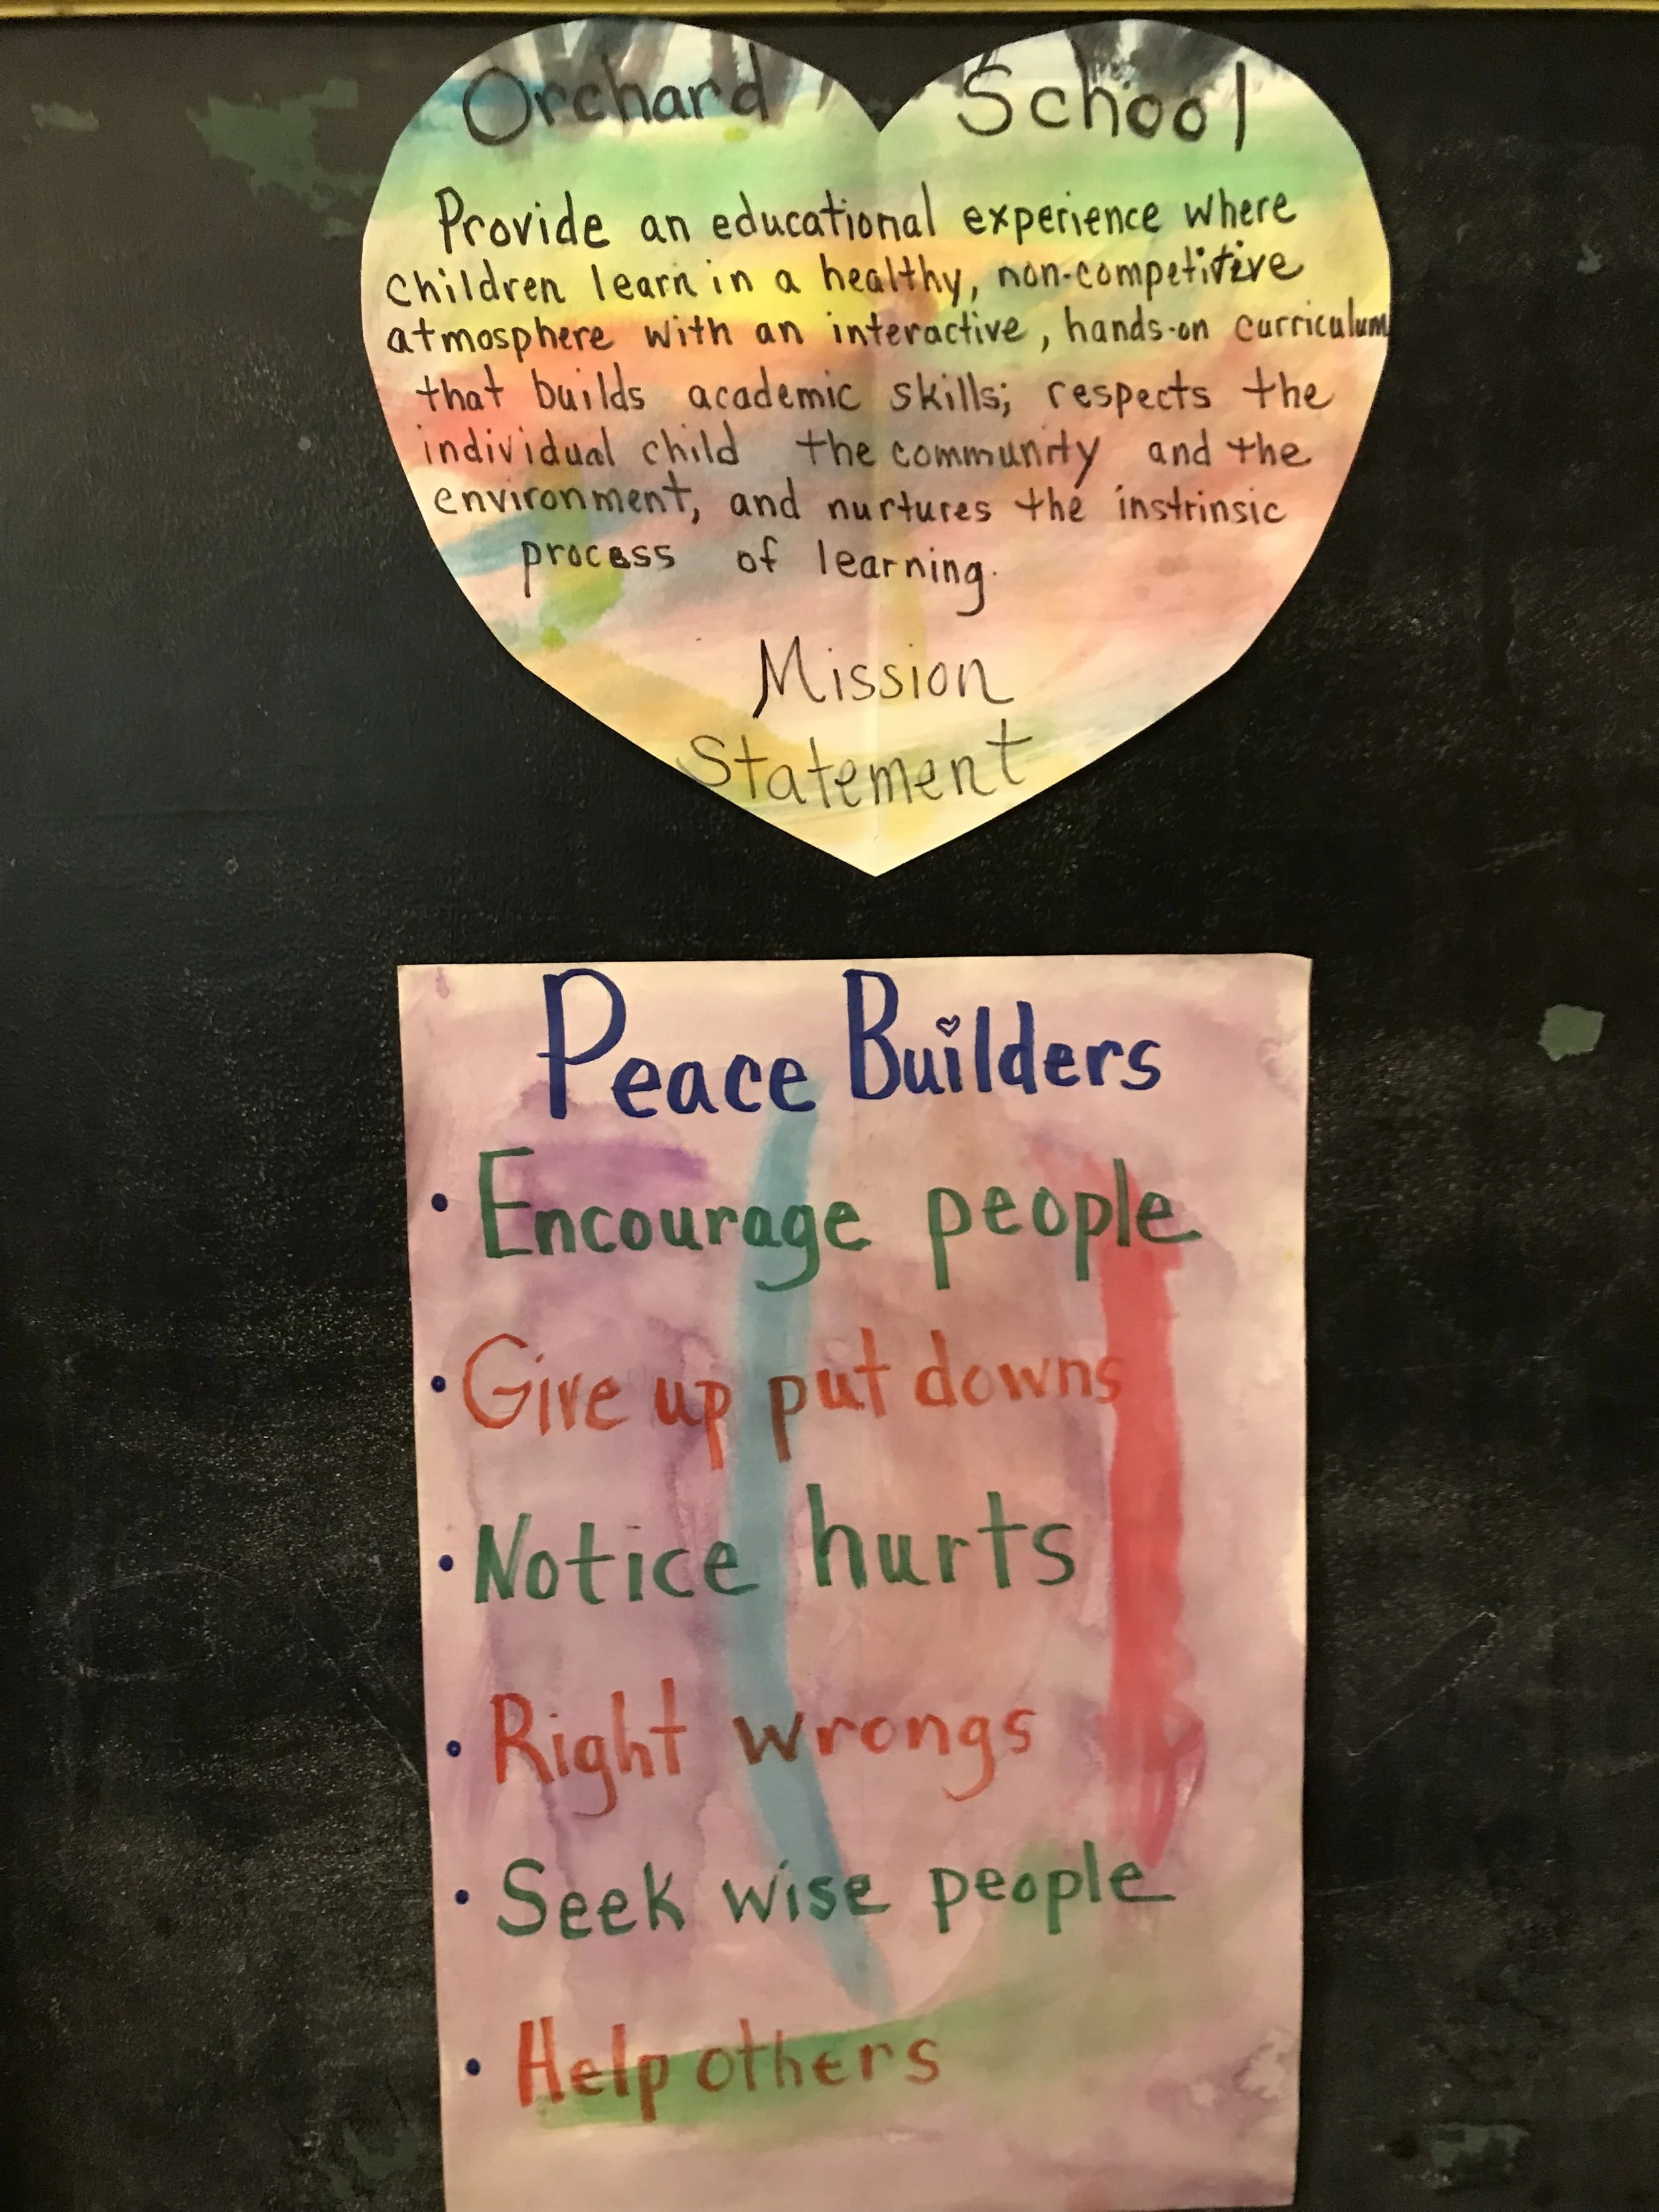 Orchard School
Provide an educational experience where
children learn in a healthy, non-competitive
atmosphere with an interactive, hands-on curriculum
that builds academic skills; respects the
individual child the community and the
environment, and nurtures the instrinsic
process of learning.
Mission
Statement
Peace Builders
• Encourage people
• Give up put downs
• Notice hurts
• Right wrongs
• Seek wise people
• Help others